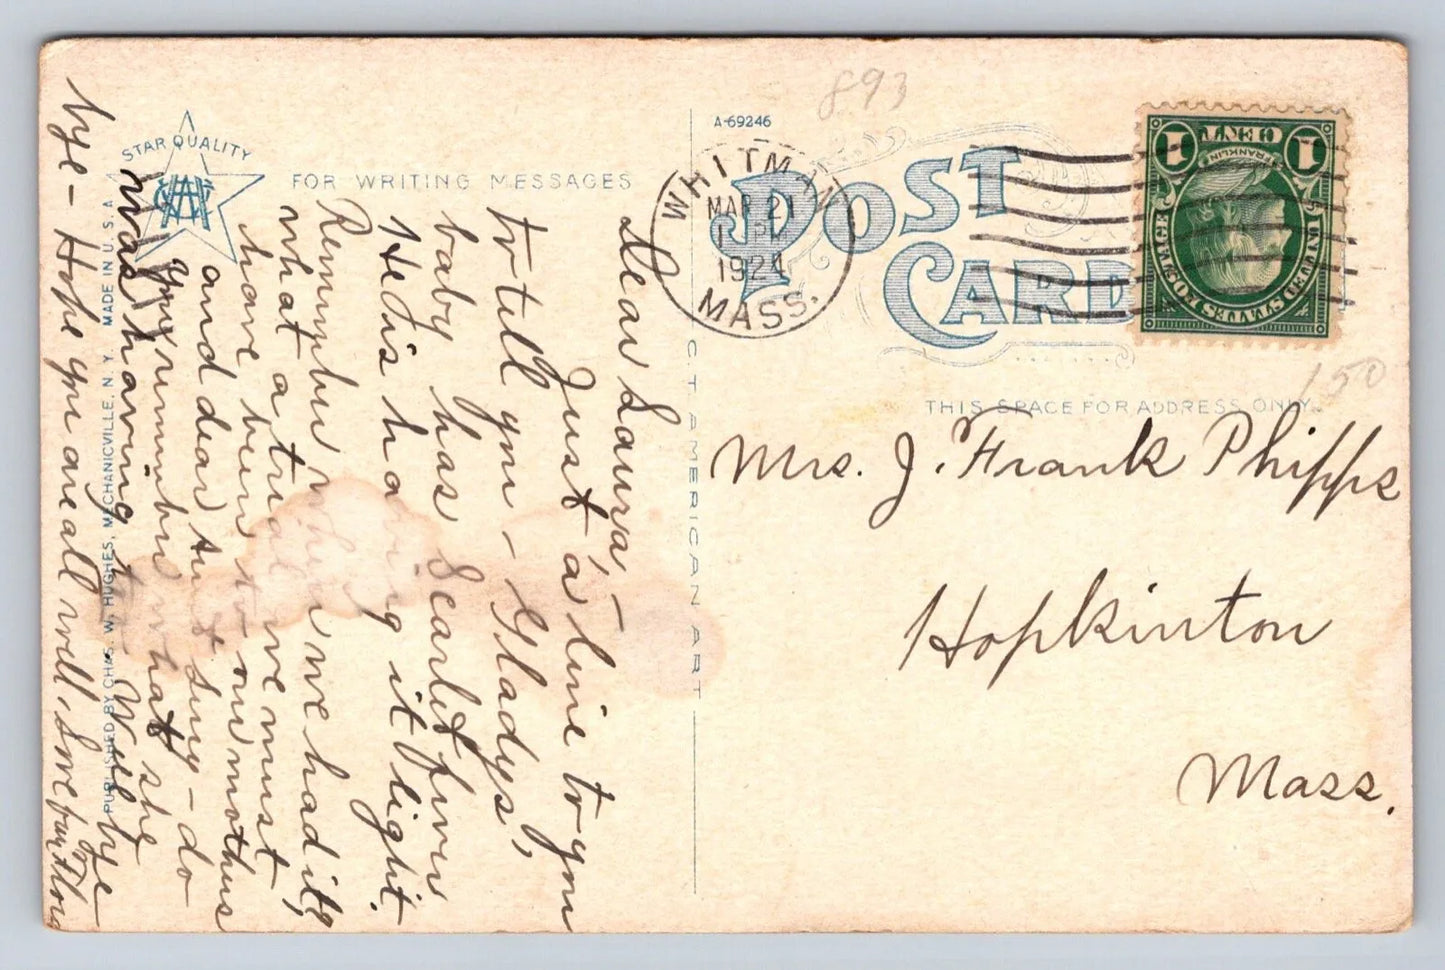 893
A-69246
STAR QUALITY
FOR WRITING MESSAGES
POST
CARD
WHITMAN
MAR 21
1924
MASS.
1 ONE CENT 1
FRANKLIN
UNITED STATES POSTAGE
150
THIS SPACE FOR ADDRESS ONLY.
Mrs. J. Frank Phipps
Hopkinton
Mass.
C T AMERICAN ART
PUBLISHED BY CHAS. W. HUGHES, MECHANICVILLE, N. Y. MADE IN U. S. A.
Dear Laura,-
Just a line to you
to tell you - Gladys',
baby has Scarlet fever
He is having it light.
Remember when we had it,
what a trial we must
have been to our mothers
and dear Aunt Susy - do
you remember what she
was having. Well bye
bye - Hope you are all well. Love from Flora